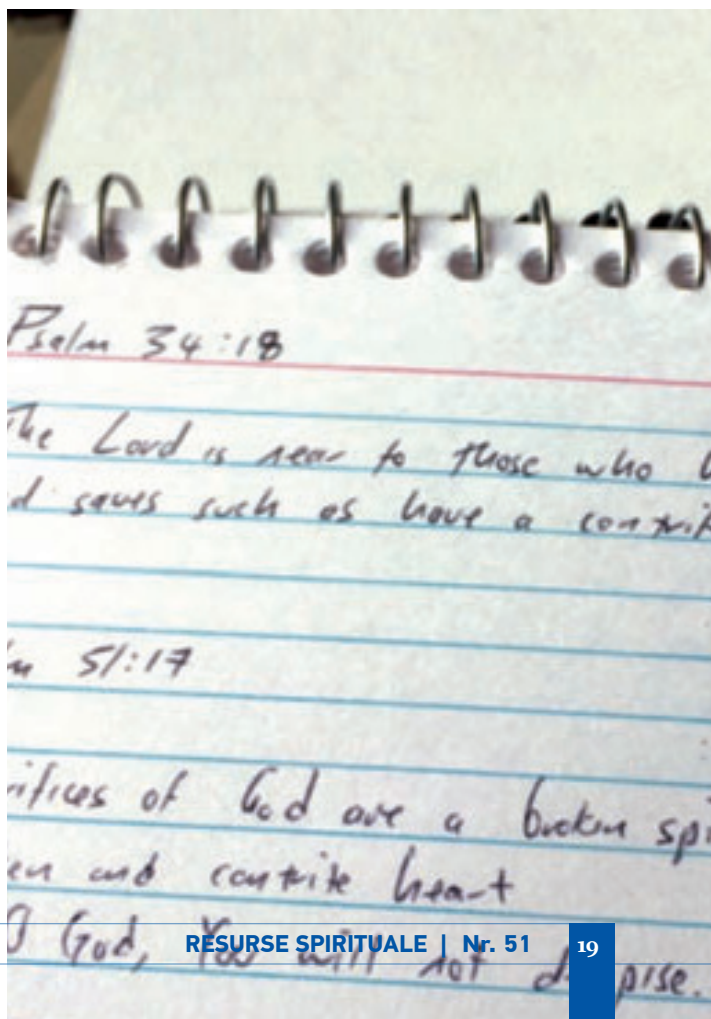 Psalm 34:18
The Lord is near to those who
d saves such as have a contrit
m 51:17
rifices of God are a broken spi
en and contrite heart
O God, You will not d pise.
RESURSE SPIRITUALE | Nr. 51
19